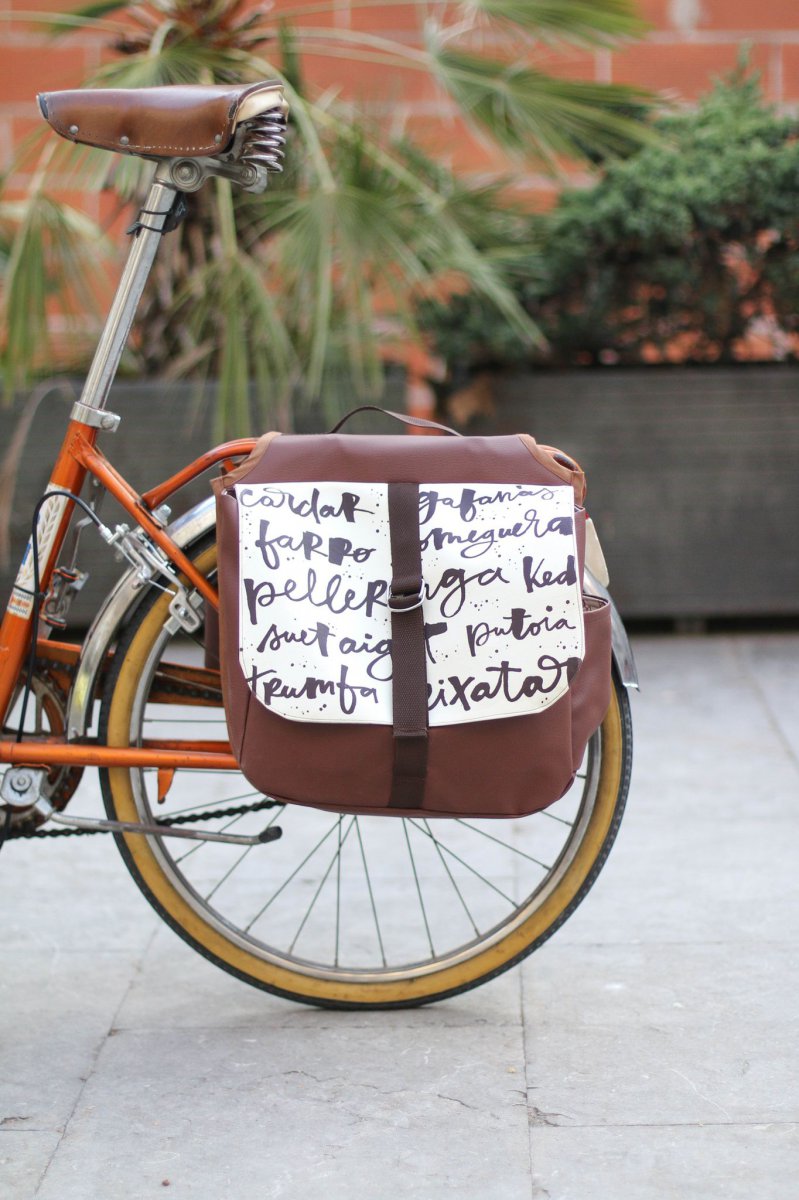 cardar gafanas
farro omeguera
pelleringa Ked
suet aig t putoia
trumfa eixatar